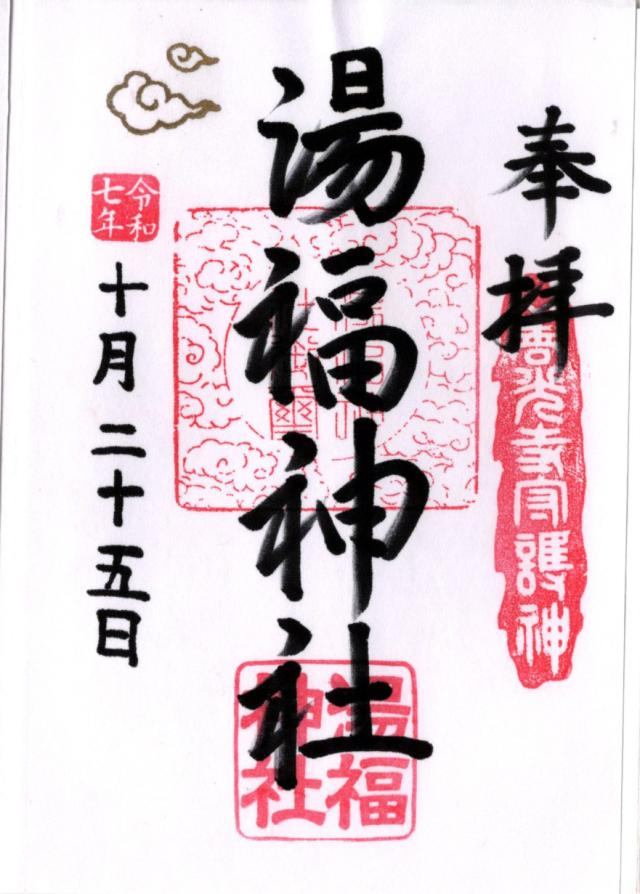 奉拝
善光寺守護神
湯福神社
湯福
神社
令和
七年
十月二十五日